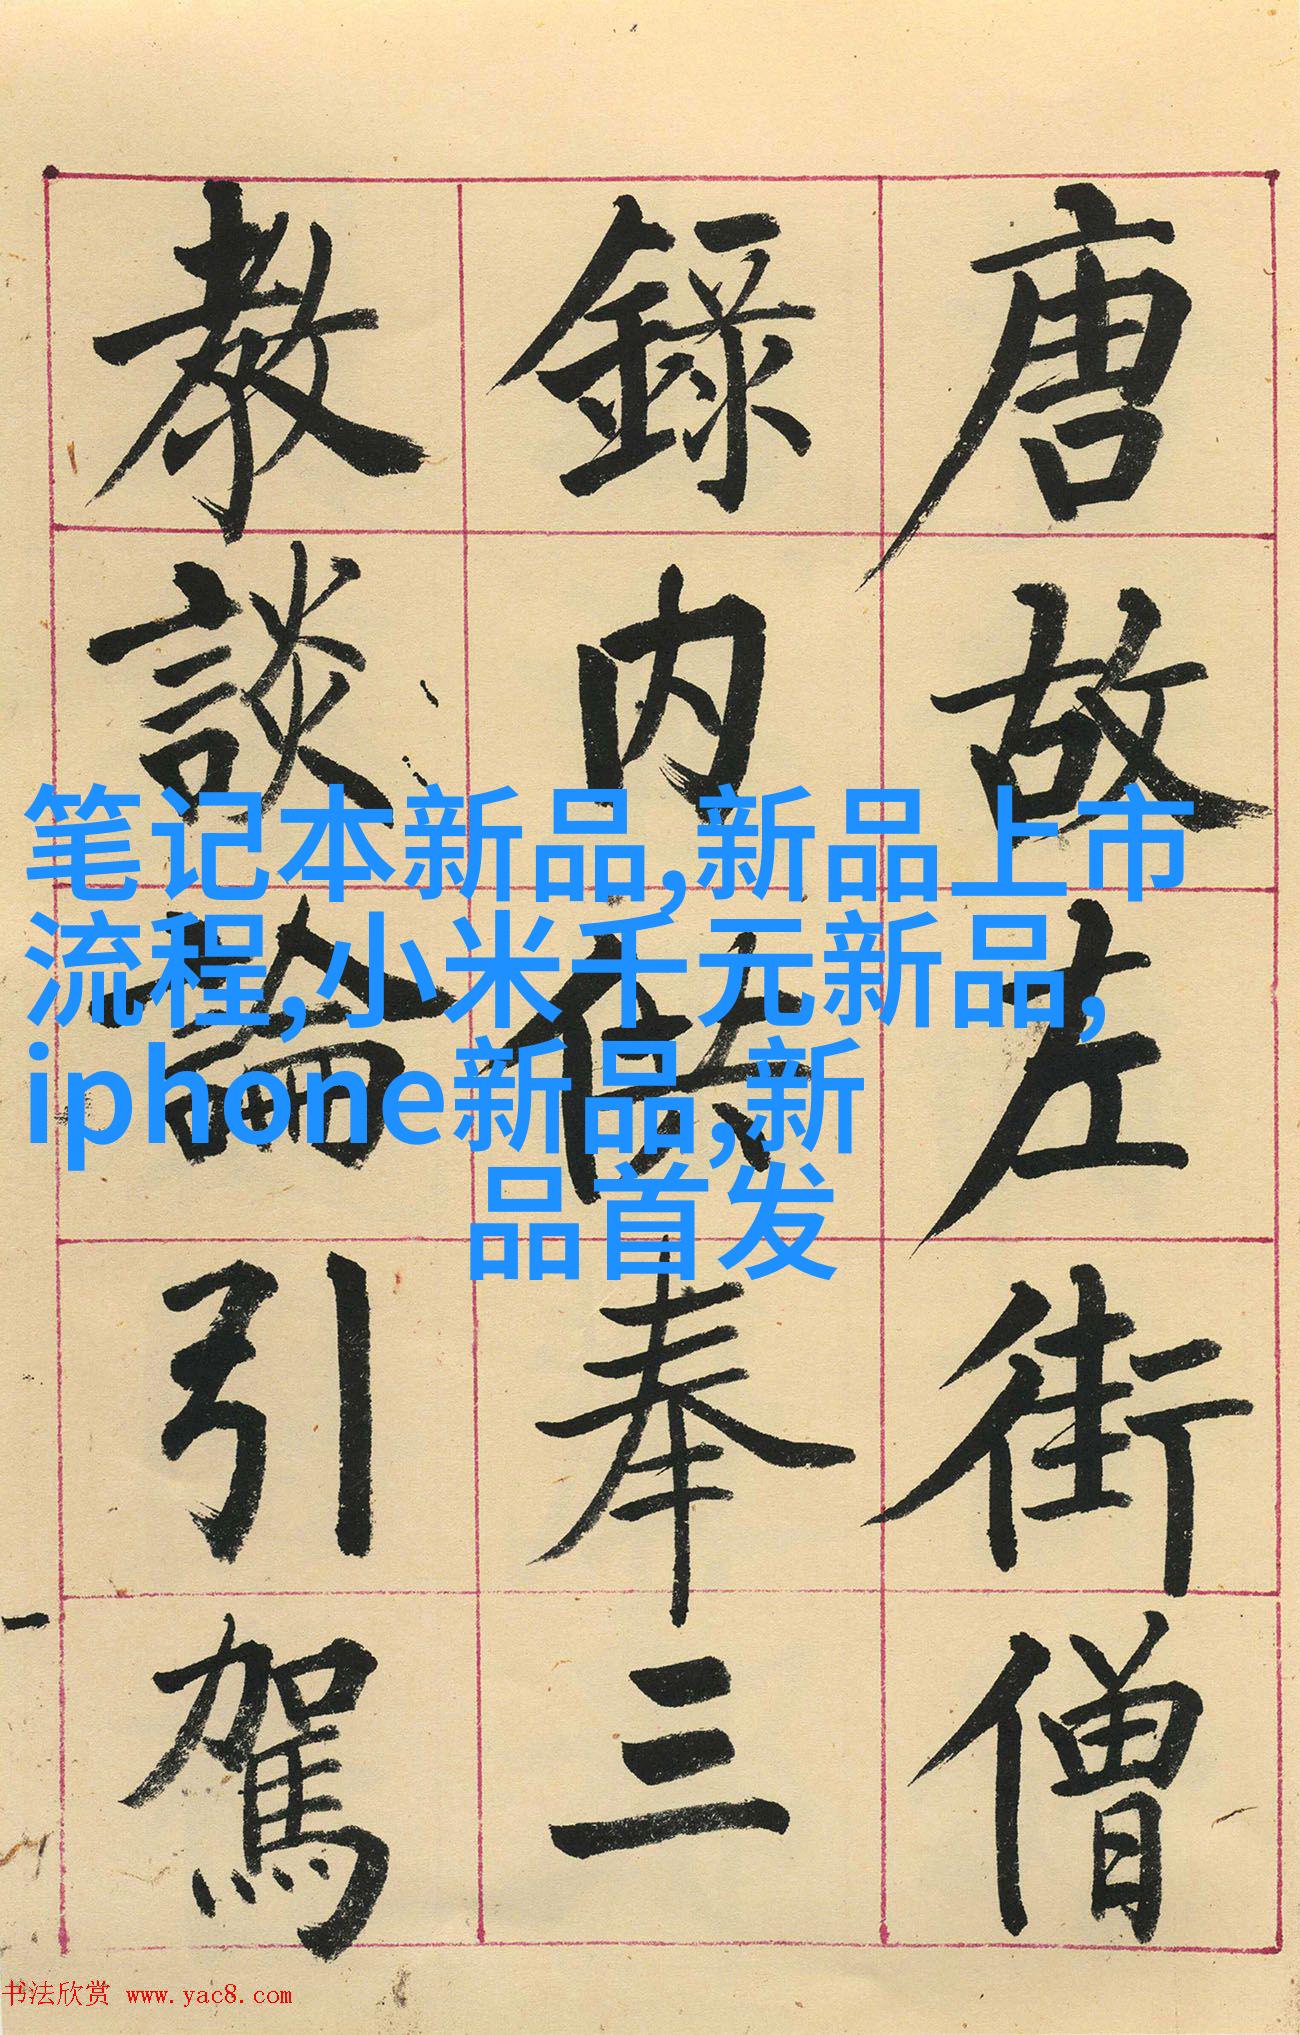 唐故左街僧
録内供奉三
教談論引駕
笔记本新品,新品上市
流程,小米千元新品,
iphone新品,新
品首发
书法欣赏 www.yac8.com